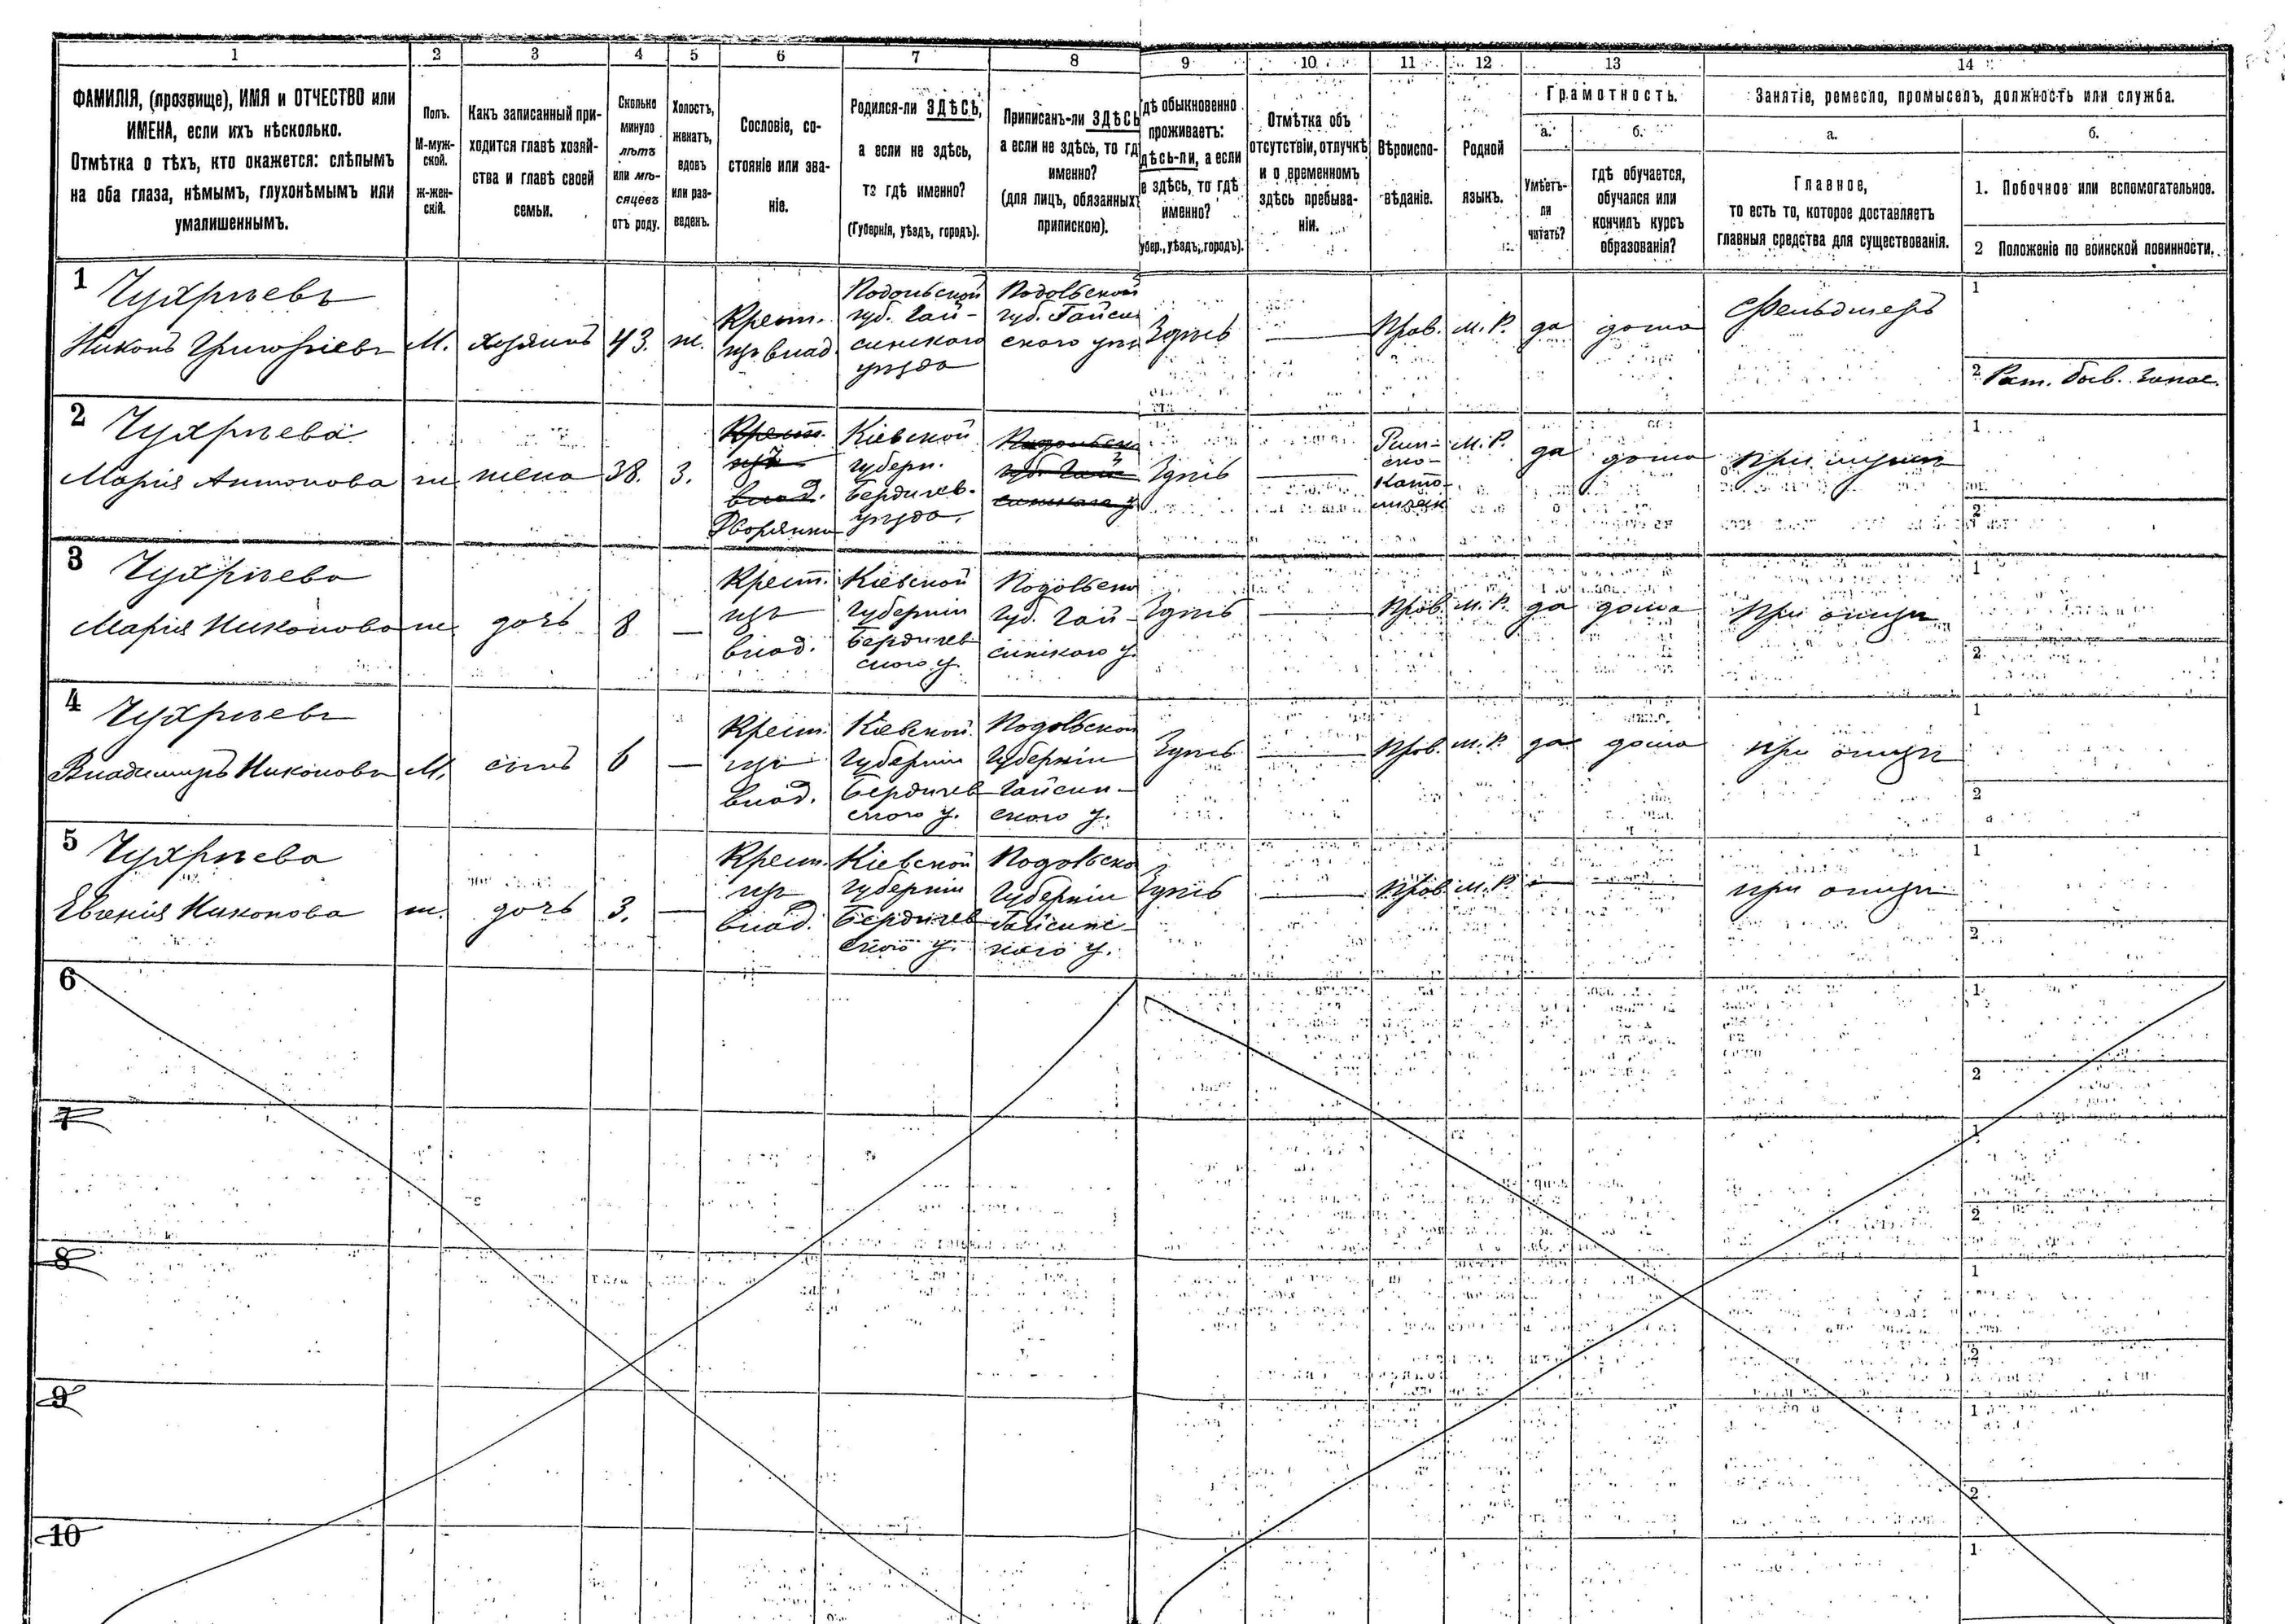 1 2 3 4 5 6 7 8 9 10 11 12 13 14
ФАМИЛІЯ, (прозвище), ИМЯ и ОТЧЕСТВО или
ИМЕНА, если ихъ нѣсколько.
Отмѣтка о тѣхъ, кто окажется: слѣпымъ
на оба глаза, нѣмымъ, глухонѣмымъ или
умалишеннымъ.
Полъ.
М-муж-
ской.
ж-жен-
скій.
Какъ записанный при-
ходится главѣ хозяй-
ства и главѣ своей
семьи.
Сколько
минуло
лѣтъ
или мѣ-
сяцевъ
отъ роду.
Холостъ,
женатъ,
вдовъ
или раз-
веденъ.
Сословіе, со-
стояніе или зва-
ніе.
Родился-ли ЗДѢСЬ,
а если не здѣсь,
то гдѣ именно?
(Губернія, уѣздъ, городъ).
Приписанъ-ли ЗДѢСЬ
а если не здѣсь, то гд
именно?
(для лицъ, обязанныхъ
припискою).
дѣ обыкновенно
проживаетъ:
дѣсь-ли, а если
е здѣсь, то гдѣ
именно?
убер., уѣздъ, городъ).
Отмѣтка объ
отсутствіи, отлучкѣ
и о временномъ
здѣсь пребыва-
ніи.
Вѣроиспо-
вѣданіе.
Родной
языкъ.
Грамотность.
а.
Умѣетъ-
ли
читать?
б.
гдѣ обучается,
обучался или
кончилъ курсъ
образованія?
Занятіе, ремесло, промыселъ, должность или служба.
а.
Главное,
то есть то, которое доставляетъ
главныя средства для существованія.
б.
1. Побочное или вспомогательное.
2 Положеніе по воинской повинности.
1
Чухріевъ
Никонъ Григоріевъ
М.
хозяинъ
43.
ж.
Крест.
изъ влад.
Подольской
губ. Гай-
синского
уѣзда
Подольской
губ. Гайсин
ского уѣз
Здѣсь
Прав.
М. Р.
да
дома
Фельдшеръ
1
2
2
Чухрѣева
Марія Антонова
ж
жена
38.
З.
Крест.
изъ
влад.
Дворянка
Кіевской
губерн.
Бердичев.
уѣзда.
Подольско
губ. Гай
синского у.
Здѣсь
Рим-
ско-
Като-
лическ
М. Р.
да
дома
при мужѣ
1
2
3
Чухрѣева
Марія Никонова
ж
дочь
8
Крест.
изъ
влад.
Кіевской
губерніи
Бердичев
ского у.
Подольско
губ. Гай-
синского у.
Здѣсь
Прав.
М. Р.
да
дома
при отцѣ
1
2
4
Чухрѣевъ
Владимиръ Никоновъ
М.
сынъ
6
Крест.
изъ
влад.
Кіевской
губерніи
Бердичев
ского у.
Подольской
губерніи
Гайсин-
ского у.
Здѣсь
Прав.
М. Р.
да
дома
при отцѣ
1
2
5
Чухрѣева
Евгенія Никонова
ж.
дочь
3.
Крест.
изъ
влад.
Кіевской
губерніи
Бердичев
ского у.
Подольско
губерніи
Гайсинс-
кого у.
Здѣсь
Прав
М. Р.
при отцѣ
1
2
6
1
2
7
1
2
8
1
2
9
1
2
10
1